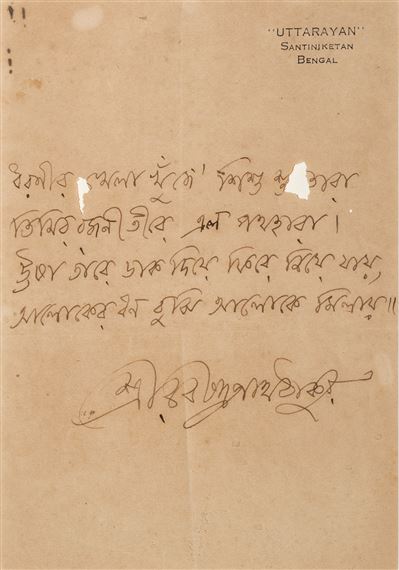 "UTTARAYAN"
SANTINIKETAN
BENGAL
ধরণীর খেলা খুঁজে শিশু শু তারা
তিমির রজনীতীরে এল পথহারা।
ঊষা তারে ডাক দিয়ে ফিরে নিয়ে যায়,
আলোকের ধন বুঝি আলোকে মিলায়॥
শ্রীরবীন্দ্রনাথ ঠাকুর